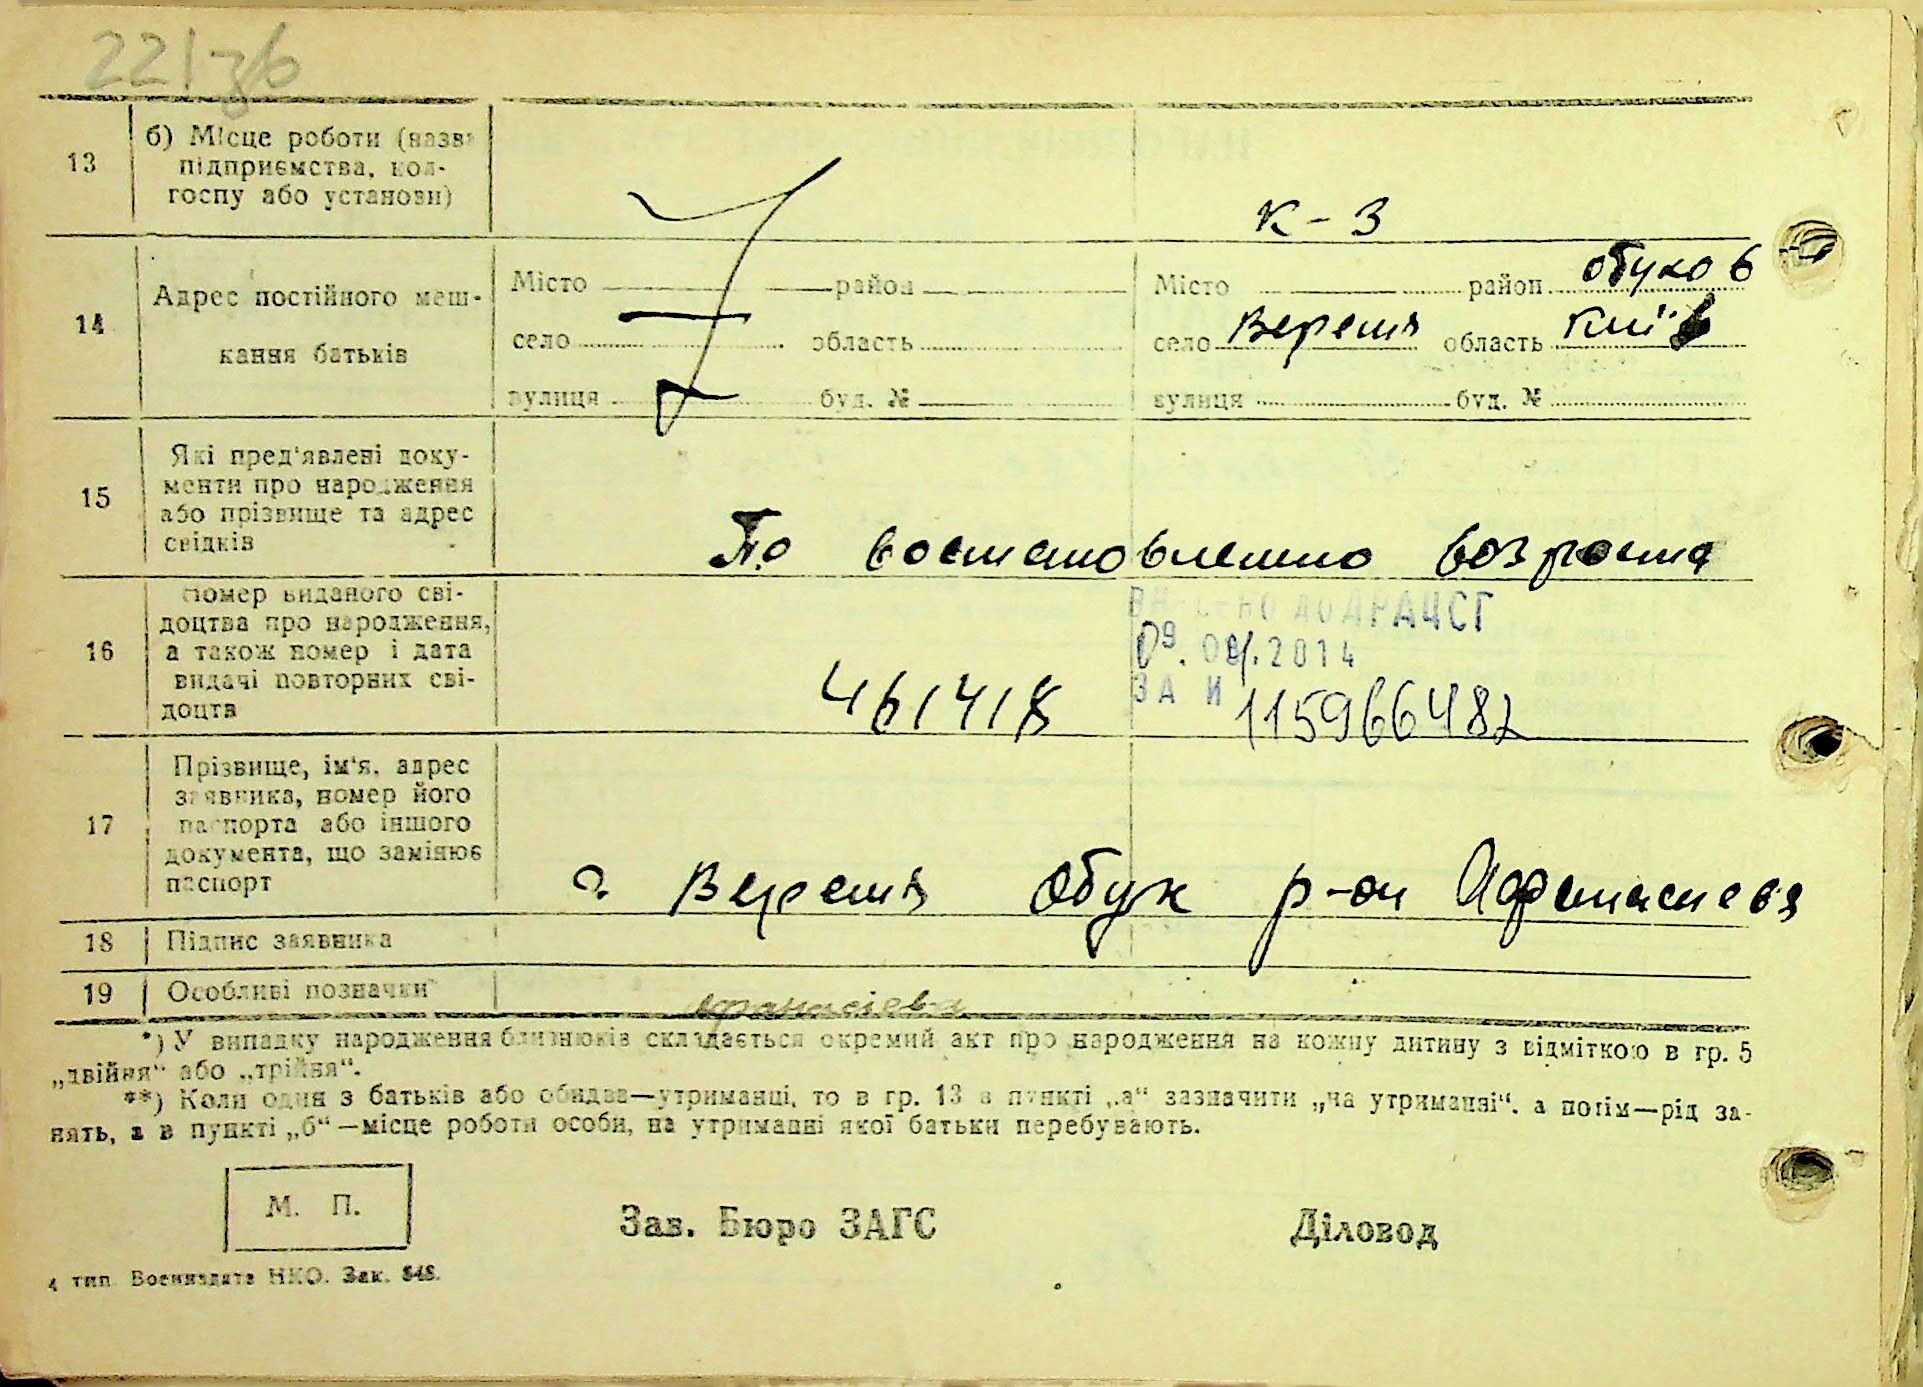 221зв
13
б) Місце роботи (назва
підприємства, кол-
госпу або установи)
К-3
14
Адрес постійного меш-
кання батьків
Місто район
село область
вулиця буд. №
Місто район Обухов
село Веремя область Київ
вулиця буд. №
15
Які пред'явлені доку-
менти про народження
або прізвище та адрес
свідків
По востановлению возроста
16
Номер виданого сві-
доцтва про народження,
а також номер і дата
видачі повторних сві-
доцтв
461418
ВНЕСЕНО ДО ДРАЦСГ
09.09.2014
ЗА И 115966482
17
Прізвище, ім'я, адрес
заявника, номер його
паспорта або іншого
документа, що замінює
паспорт
с. Веремя Обух р-он Афанасиева
18
Підпис заявника
19
Особливі позначки
Афанасієва
*) У випадку народження близнюків складається окремий акт про народження на кожну дитину з відміткою в гр. 5
„двійня“ або „трійня“.
**) Коли один з батьків або обидва—утриманці, то в гр. 13 в пункті „а“ зазначити „на утриманні“, а потім—рід за-
нять, а в пункті „б“—місце роботи особи, на утриманні якої батьки перебувають.
М. П.
Зав. Бюро ЗАГС
Діловод
4 тип. Воениздата НКО. Зак. 848.